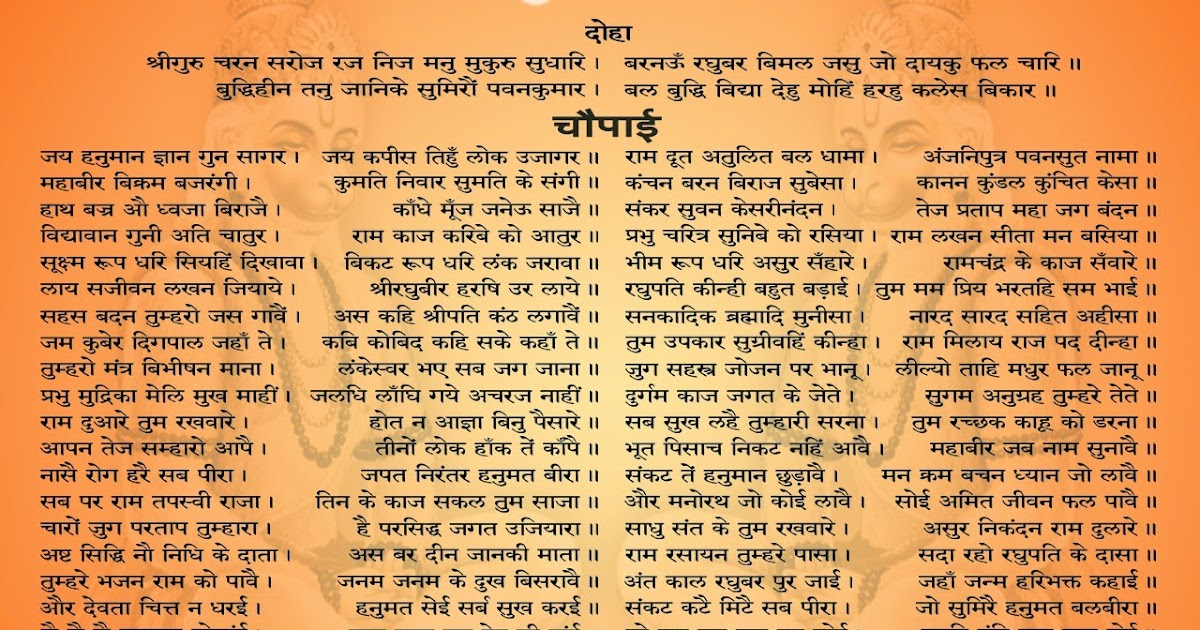 दोहा
श्रीगुरु चरन सरोज रज निज मनु मुकुरु सुधारि । बरनऊँ रघुबर बिमल जसु जो दायकु फल चारि ॥
बुद्धिहीन तनु जानिके सुमिरौं पवनकुमार । बल बुद्धि बिद्या देहु मोहिं हरहु कलेस बिकार ॥
चौपाई
जय हनुमान ज्ञान गुन सागर । जय कपीस तिहुँ लोक उजागर ॥ राम दूत अतुलित बल धामा । अंजनिपुत्र पवनसुत नामा ॥
महाबीर बिक्रम बजरंगी । कुमति निवार सुमति के संगी ॥ कंचन बरन बिराज सुबेसा । कानन कुंडल कुंचित केसा ॥
हाथ बज्र औ ध्वजा बिराजै । काँधे मूँज जनेऊ साजै ॥ संकर सुवन केसरीनंदन । तेज प्रताप महा जग बंदन ॥
विद्यावान गुनी अति चातुर । राम काज करिबे को आतुर ॥ प्रभु चरित्र सुनिबे को रसिया । राम लखन सीता मन बसिया ॥
सूक्ष्म रूप धरि सियहिं दिखावा । बिकट रूप धरि लंक जरावा ॥ भीम रूप धरि असुर सँहारे । रामचंद्र के काज सँवारे ॥
लाय सजीवन लखन जियाये । श्रीरघुबीर हरषि उर लाये ॥ रघुपति कीन्ही बहुत बड़ाई । तुम मम प्रिय भरतहि सम भाई ॥
सहस बदन तुम्हरो जस गावैं । अस कहि श्रीपति कंठ लगावैं ॥ सनकादिक ब्रह्मादि मुनीसा । नारद सारद सहित अहीसा ॥
जम कुबेर दिगपाल जहाँ ते । कबि कोबिद कहि सके कहाँ ते ॥ तुम उपकार सुग्रीवहिं कीन्हा । राम मिलाय राज पद दीन्हा ॥
तुम्हरो मंत्र बिभीषन माना । लंकेस्वर भए सब जग जाना ॥ जुग सहस्त्र जोजन पर भानू । लील्यो ताहि मधुर फल जानू ॥
प्रभु मुद्रिका मेलि मुख माहीं । जलधि लाँघि गये अचरज नाहीं ॥ दुर्गम काज जगत के जेते । सुगम अनुग्रह तुम्हरे तेते ॥
राम दुआरे तुम रखवारे । होत न आज्ञा बिनु पैसारे ॥ सब सुख लहै तुम्हारी सरना । तुम रच्छक काहू को डरना ॥
आपन तेज सम्हारो आपै । तीनों लोक हाँक तें काँपै ॥ भूत पिसाच निकट नहिं आवै । महाबीर जब नाम सुनावै ॥
नासै रोग हरै सब पीरा । जपत निरंतर हनुमत बीरा ॥ संकट तें हनुमान छुड़ावै । मन क्रम बचन ध्यान जो लावै ॥
सब पर राम तपस्वी राजा । तिन के काज सकल तुम साजा ॥ और मनोरथ जो कोई लावै । सोई अमित जीवन फल पावै ॥
चारों जुग परताप तुम्हारा । है परसिद्ध जगत उजियारा ॥ साधु संत के तुम रखवारे । असुर निकंदन राम दुलारे ॥
अष्ट सिद्धि नौ निधि के दाता । अस बर दीन जानकी माता ॥ राम रसायन तुम्हरे पासा । सदा रहो रघुपति के दासा ॥
तुम्हरे भजन राम को पावै । जनम जनम के दुख बिसरावै ॥ अंत काल रघुबर पुर जाई । जहाँ जन्म हरिभक्त कहाई ॥
और देवता चित्त न धरई । हनुमत सेई सर्ब सुख करई ॥ संकट कटै मिटै सब पीरा । जो सुमिरै हनुमत बलबीरा ॥